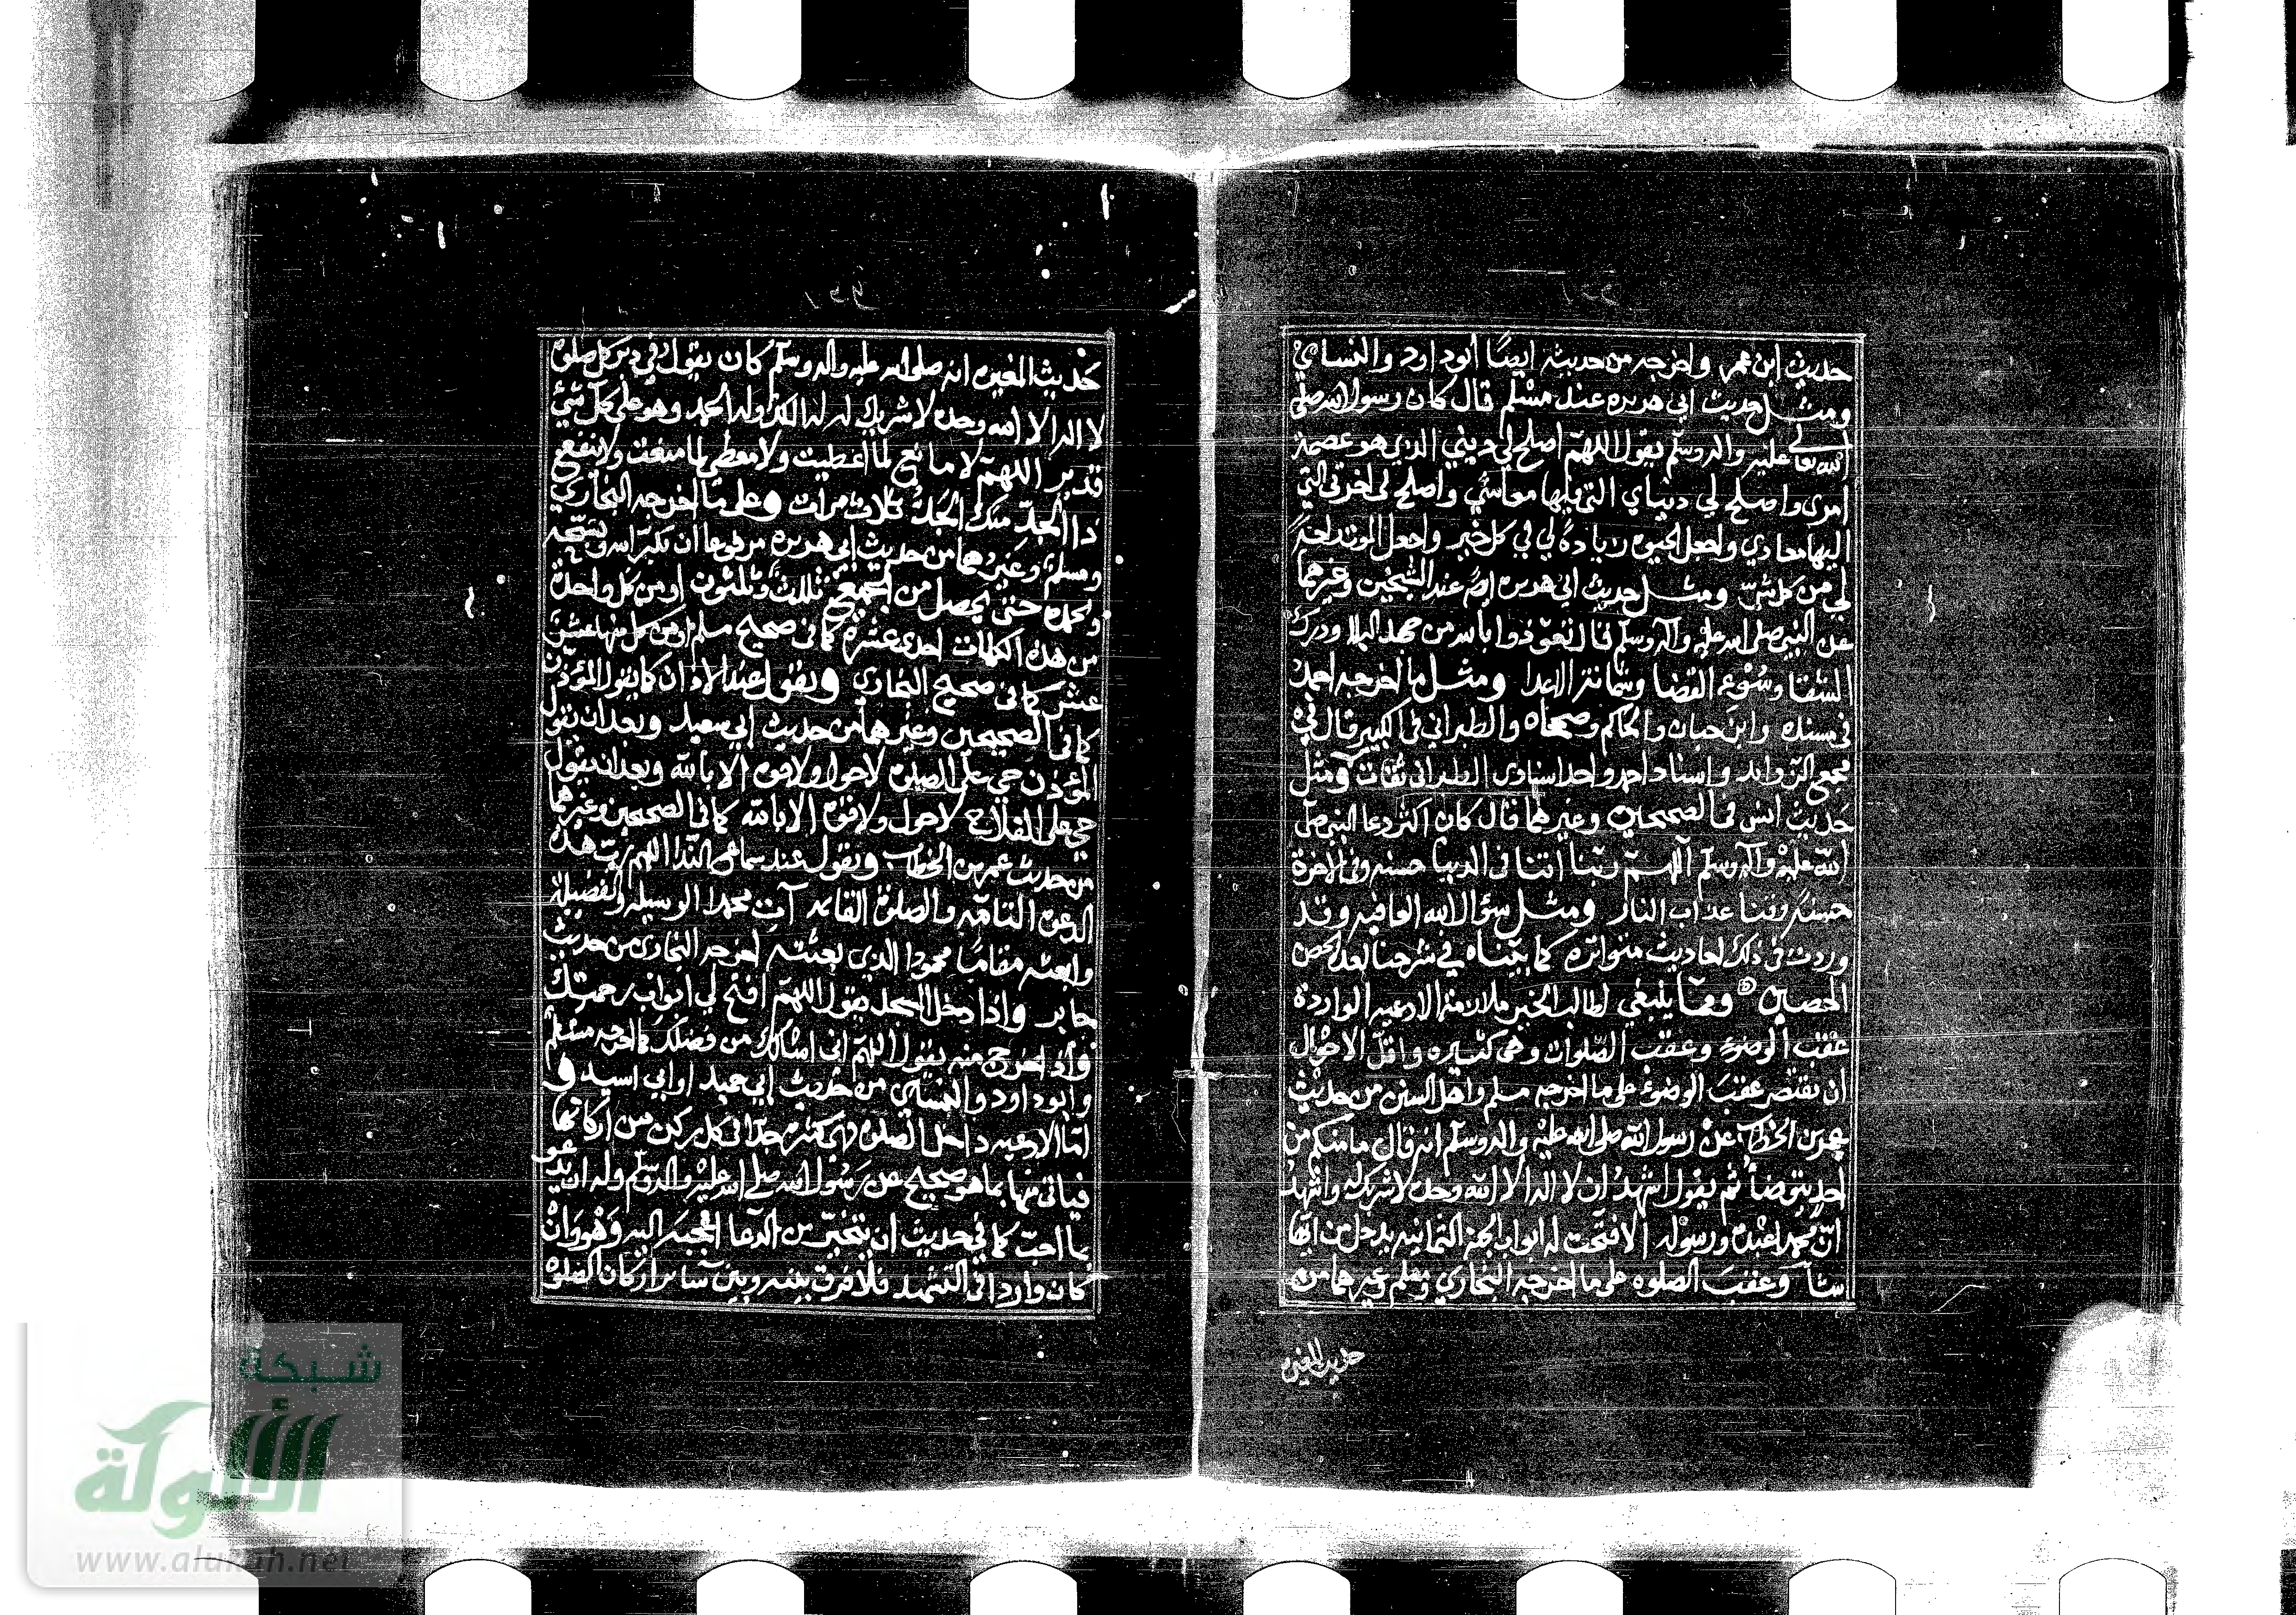 حديث ابن عمر واخرجه من حديثه ايضا ابوداود والنساي
ومثل حديث ابي هريره عند مسلم قال كان رسول الله صلى
الله تعالى عليه واله وسلم يقول اللهم اصلح لي ديني الذي هو عصمة
امري واصلح لي دنياي التي فيها معاشي واصلح لي اخرتي التي
اليها معادي واجعل الحيوه زيادة لي في كل خير واجعل الموت راحة
لي من كل شر ومثل حديث ابي هريره ايضا عند الشيخين وغيرهما
عن النبي صلى الله عليه واله وسلم قال تعوذوا بالله من جهد البلا ودرك
الشقا وسوء القضا وشماتة الاعدا ومثل ما اخرجه احمد
في مسنده وابن حبان والحاكم وصححاه والطبراني في الكبير قال في
مجمع الزوايد واسناد احمد واحد اسنادي الطبراني ثقات ومثل
حديث انس في الصحيحين وغيرهما قال كان اكثر دعا النبي صلى
الله عليه واله وسلم اللهم ربنا اتنا في الدنيا حسنه وفي الاخرة
حسنه وقنا عذاب النار ومثل سؤال الله العافيه وقد
وردت في ذلك احاديث متواتره كما بيناه في شرحنا لعدة الحصن
الحصين ومما ينبغي لطالب الخير ملازمة الادعيه الواردة
عقب الوضوء وعقب الصلوات وهي كثيره واقل الاحوال
ان يقتصر عقب الوضوء على ما اخرجه مسلم واهل السنن من حديث
عمر بن الخطاب عن رسول الله صلى الله عليه واله وسلم انه قال ما منكم من
احد يتوضأ ثم يقول اشهد ان لا اله الا الله وحده لا شريك له واشهد
ان محمدا عبده ورسوله الا فتحت له ابواب الجنة الثمانيه يدخل من ايها
شآ وعقب الصلوه على ما اخرجه البخاري ومسلم وغيرهما من
حديث المغيره
حديث المغيره انه صلى الله عليه واله وسلم كان يقول في دبر كل صلوة
لا اله الا الله وحده لا شريك له له الملك وله الحمد وهو على كل شيئ
قدير اللهم لا مانع لما اعطيت ولا معطي لما منعت ولا ينفع
ذا الجد منك الجد ثلاث مرات وعلى ما اخرجه البخاري
ومسلم وغيرهما من حديث ابي هريرة مرفوعا ان يكبر الله ويسبحه
ويحمده حتى يحصل من الجميع ثلاث وثلثون او من كل واحدة
من هذه الكلمات احدى عشرة كما في صحيح مسلم او من كل منها عشر
عشر كما في صحيح البخاري ويقول عند الاذان كما يقول المؤذن
كما في الصحيحين وغيرهما من حديث ابي سعيد وبعد ان يقول
المؤذن حي على الصلوه لا حول ولا قوه الا بالله وبعد ان يقول
حي على الفلاح لا حول ولا قوة الا بالله كما في الصحيحين وغيرهما
من حديث عمر بن الخطاب ويقول عند سماع الندا اللهم رب هذه
الدعوه التامه والصلوة القايمه آت محمدا الوسيله والفضيلة
وابعثه مقاما محمودا الذي بعثته اخرجه البخاري من حديث
جابر واذا دخل المسجد يقول اللهم افتح لي ابواب رحمتك
واذا خرج منه يقول اللهم اني اسألك من فضلك كما اخرجه مسلم
وابوداود والنساي من حديث ابي حميد او ابي اسيد و
اما الادعيه داخل الصلوه فهي كثيره جدا في كل ركن من اركانها
فياتي منها بما هو صحيح عن رسول الله صلى الله عليه واله وسلم وله ان يدعو
بما احب كما في حديث ان يتخير من الدعا اعجبه اليه وهو وان
كان واردا في التشهد فلا فرق بينه وبين ساير اركان الصلوه
شبكة
الألوكة
www.alukah.net